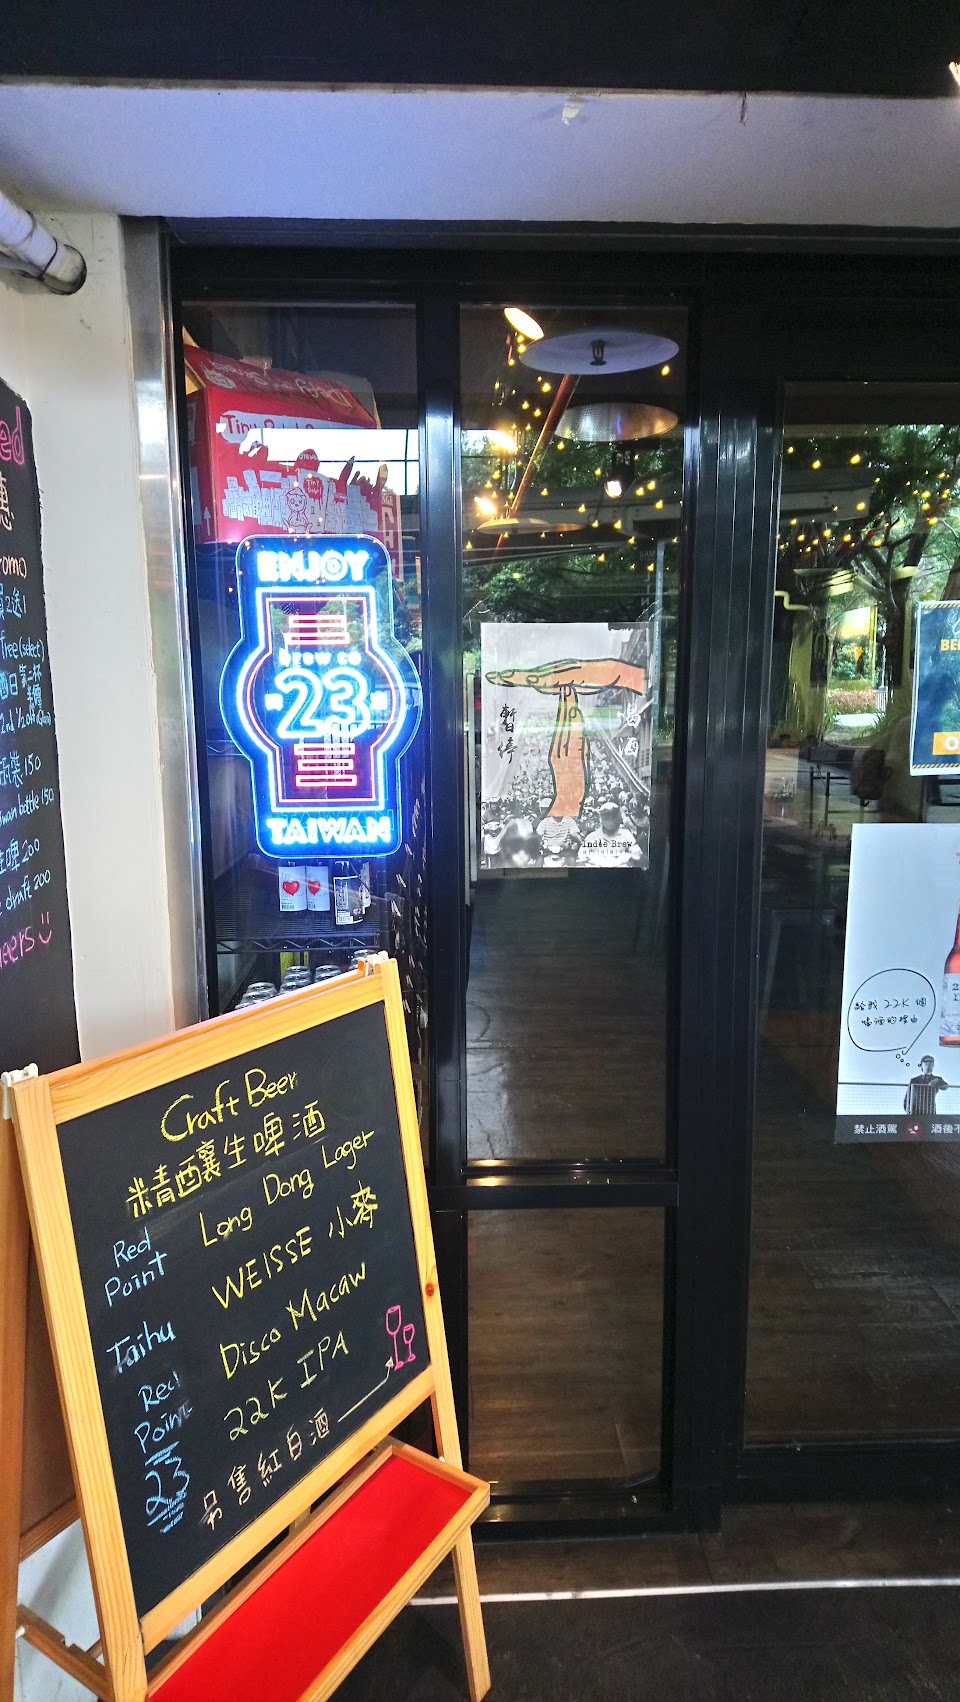 ed
惠
romo
買2送1
free (select)
酒日第二杯
半價
2nd ½ off (Glass)
瓶裝 150
iwan bottle 150
生啤 200
e draft 200
heers
Tiny
ENJOY
brew co
23
TAIWAN
暫停
喝酒
Indie Brew
BE
O
給我 22K 個
喝酒的理由
禁止酒駕
酒後不
Craft Beer
精釀生啤酒
Red Point Long Dong Lager
Taihu WEISSE 小麥
Red Point Disco Macaw
23 22K IPA
另售紅白酒